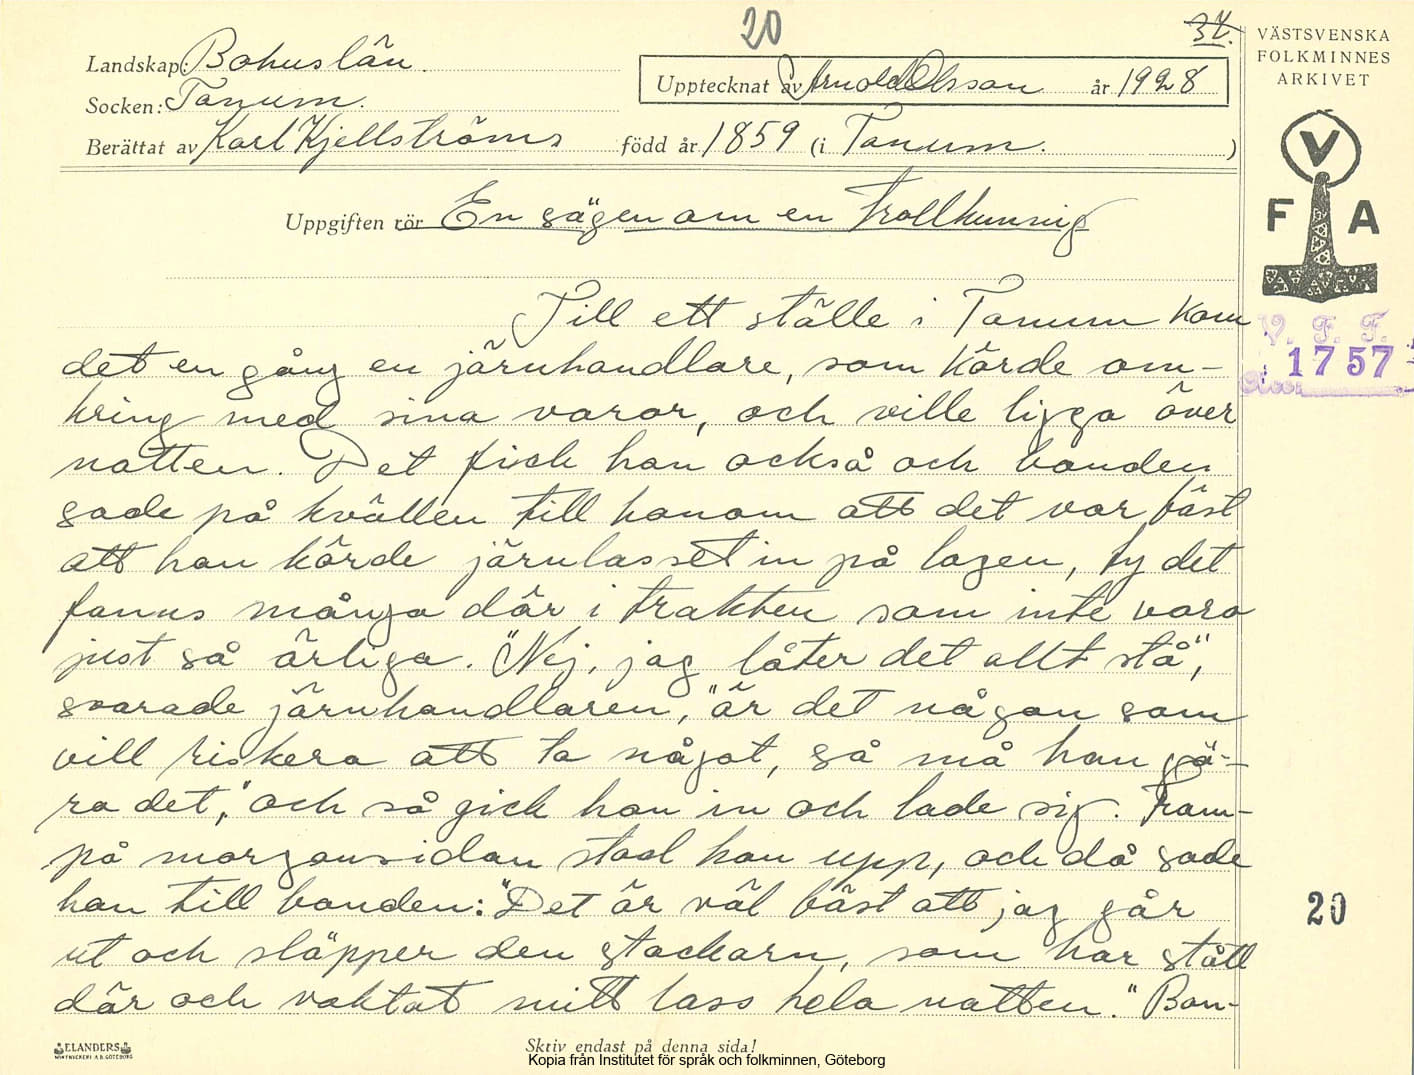 20
34.
Landskap: Bohuslän.
Upptecknat av Arnold Olsson år 1928
Socken: Tanum.
Berättat av Karl Kjellströms född år 1859 (i Tanum. )
Uppgiften rör En sägen om en trollkunnig
Till ett ställe i Tanum kom
det en gång en järnhandlare, som körde om-
kring med sina varor, och ville ligga över
natten. Det fick han också och bonden
sade på kvällen till honom att det var bäst
att han körde järnlasset in på logen, ty det
fanns många där i trakten som inte voro
just så ärliga. "Nej, jag låter det allt stå",
svarade järnhandlaren, "är det någon som
vill riskera att ta något, så må han gö-
ra det," och så gick han in och lade sig. Fram-
på morgonsidan stod han upp, och då sade
han till bonden: "Det är väl bäst att jag går
ut och släpper den stackarn, som har stått
där och vaktat mitt lass hela natten." Bon-
VÄSTSVENSKA
FOLKMINNES
ARKIVET
V
F A
V. F. F.
1757
20
ELANDERS
Skriv endast på denna sida!
Kopia från Institutet för språk och folkminnen, Göteborg